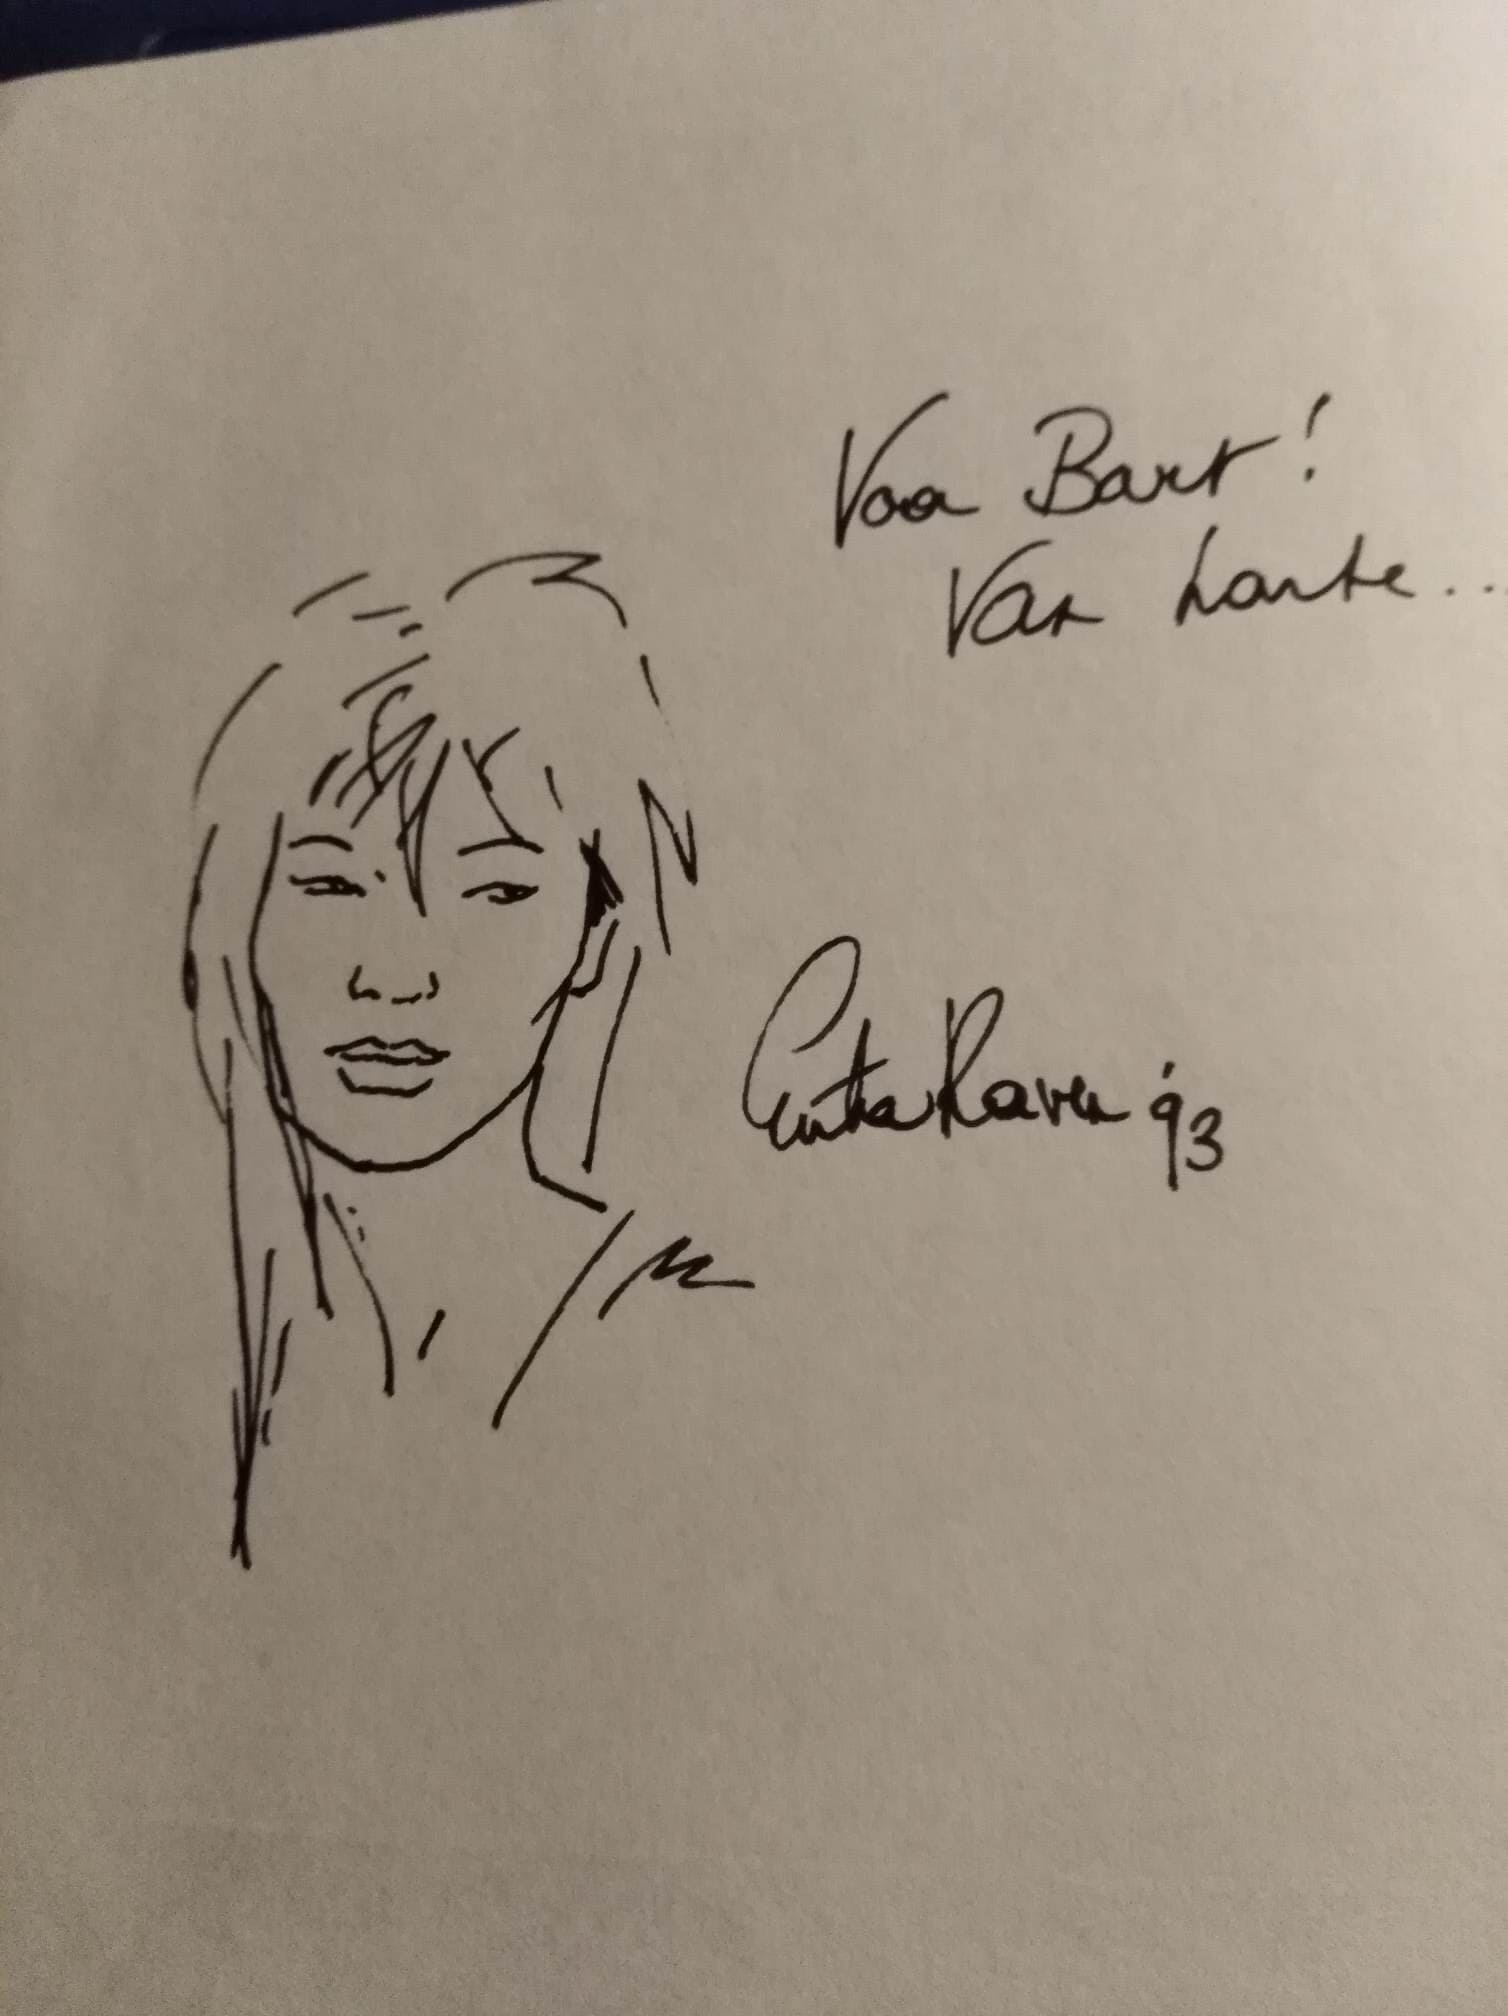 Voor Bart!
Van harte...
Cintia Raven '93